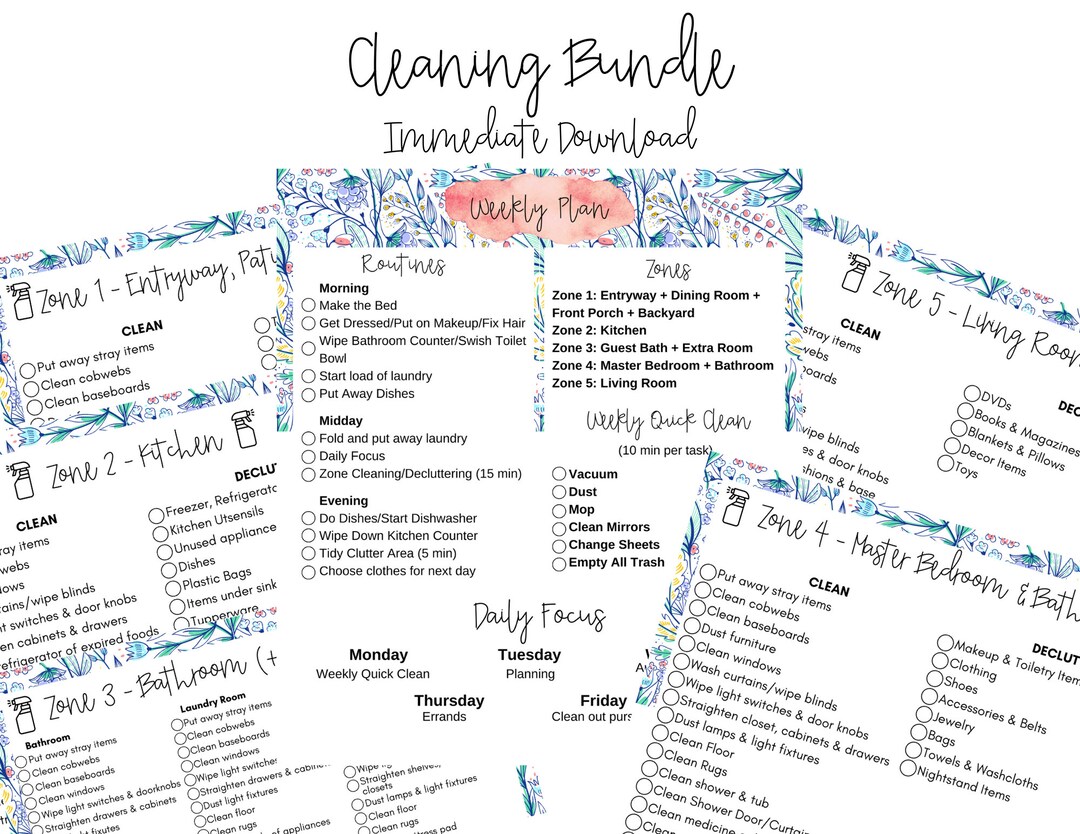 Cleaning Bundle
Immediate Download
Weekly Plan
Routines
Morning
Make the Bed
Get Dressed/Put on Makeup/Fix Hair
Wipe Bathroom Counter/Swish Toilet
Bowl
Start load of laundry
Put Away Dishes
Midday
Fold and put away laundry
Daily Focus
Zone Cleaning/Decluttering (15 min)
Evening
Do Dishes/Start Dishwasher
Wipe Down Kitchen Counter
Tidy Clutter Area (5 min)
Choose clothes for next day
Zones
Zone 1: Entryway + Dining Room +
Front Porch + Backyard
Zone 2: Kitchen
Zone 3: Guest Bath + Extra Room
Zone 4: Master Bedroom + Bathroom
Zone 5: Living Room
Weekly Quick Clean
(10 min per task)
Vacuum
Dust
Mop
Clean Mirrors
Change Sheets
Empty All Trash
Daily Focus
Monday
Weekly Quick Clean
Tuesday
Planning
Thursday
Errands
Friday
Clean out purs
Zone 1 - Entryway, Pati
CLEAN
Put away stray items
Clean cobwebs
Clean baseboards
Zone 2 - Kitchen
CLEAN
ray items
webs
ows
tains/wipe blinds
ht switches & door knobs
en cabinets & drawers
refrigerator of expired foods
DECLUT
Freezer, Refrigerato
Kitchen Utsensils
Unused appliance
Dishes
Plastic Bags
Items under sink
Tupperware
Zone 3 - Bathroom (+
Bathroom
Put away stray items
Clean cobwebs
Clean baseboards
Clean windows
Wipe light switches & doorknobs
Straighten drawers & cabinets
Dust light fixutes
Laundry Room
Put away stray items
Clean cobwebs
Clean baseboards
Clean windows
Wipe light switches
Straighten drawers & cabin
Dust light fixtures
Clean floor
Clean rugs
of appliances
Wipe lig
Straighten shelves,
closets
Dust lamps & light fixtures
Clean floor
Clean rugs
tress pad
Zone 5 - Living Room
CLEAN
stray items
webs
oards
wipe blinds
es & door knobs
shions & base
DEC
DVDs
Books & Magazines
Blankets & Pillows
Decor Items
Toys
Zone 4 - Master Bedroom & Bath
CLEAN
Put away stray items
Clean cobwebs
Clean baseboards
Dust furniture
Clean windows
Wash curtains/wipe blinds
Wipe light switches & door knobs
Straighten closet, cabinets & drawers
Dust lamps & light fixtures
Clean Floor
Clean Rugs
Clean shower & tub
Clean Shower Door/Curtain
Clean medicine
Clean
DECLUT
Makeup & Toiletry Item
Clothing
Shoes
Accessories & Belts
Jewelry
Bags
Towels & Washcloths
Nightstand Items